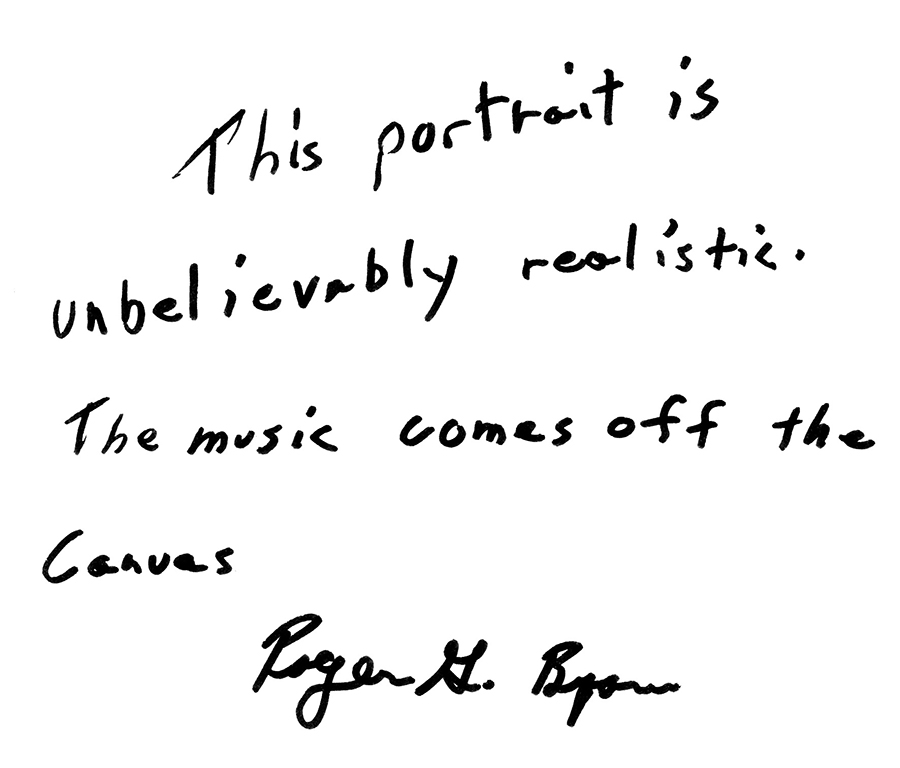 This portrait is
unbelievably realistic.
The music comes off the
Canvas
Roger G.